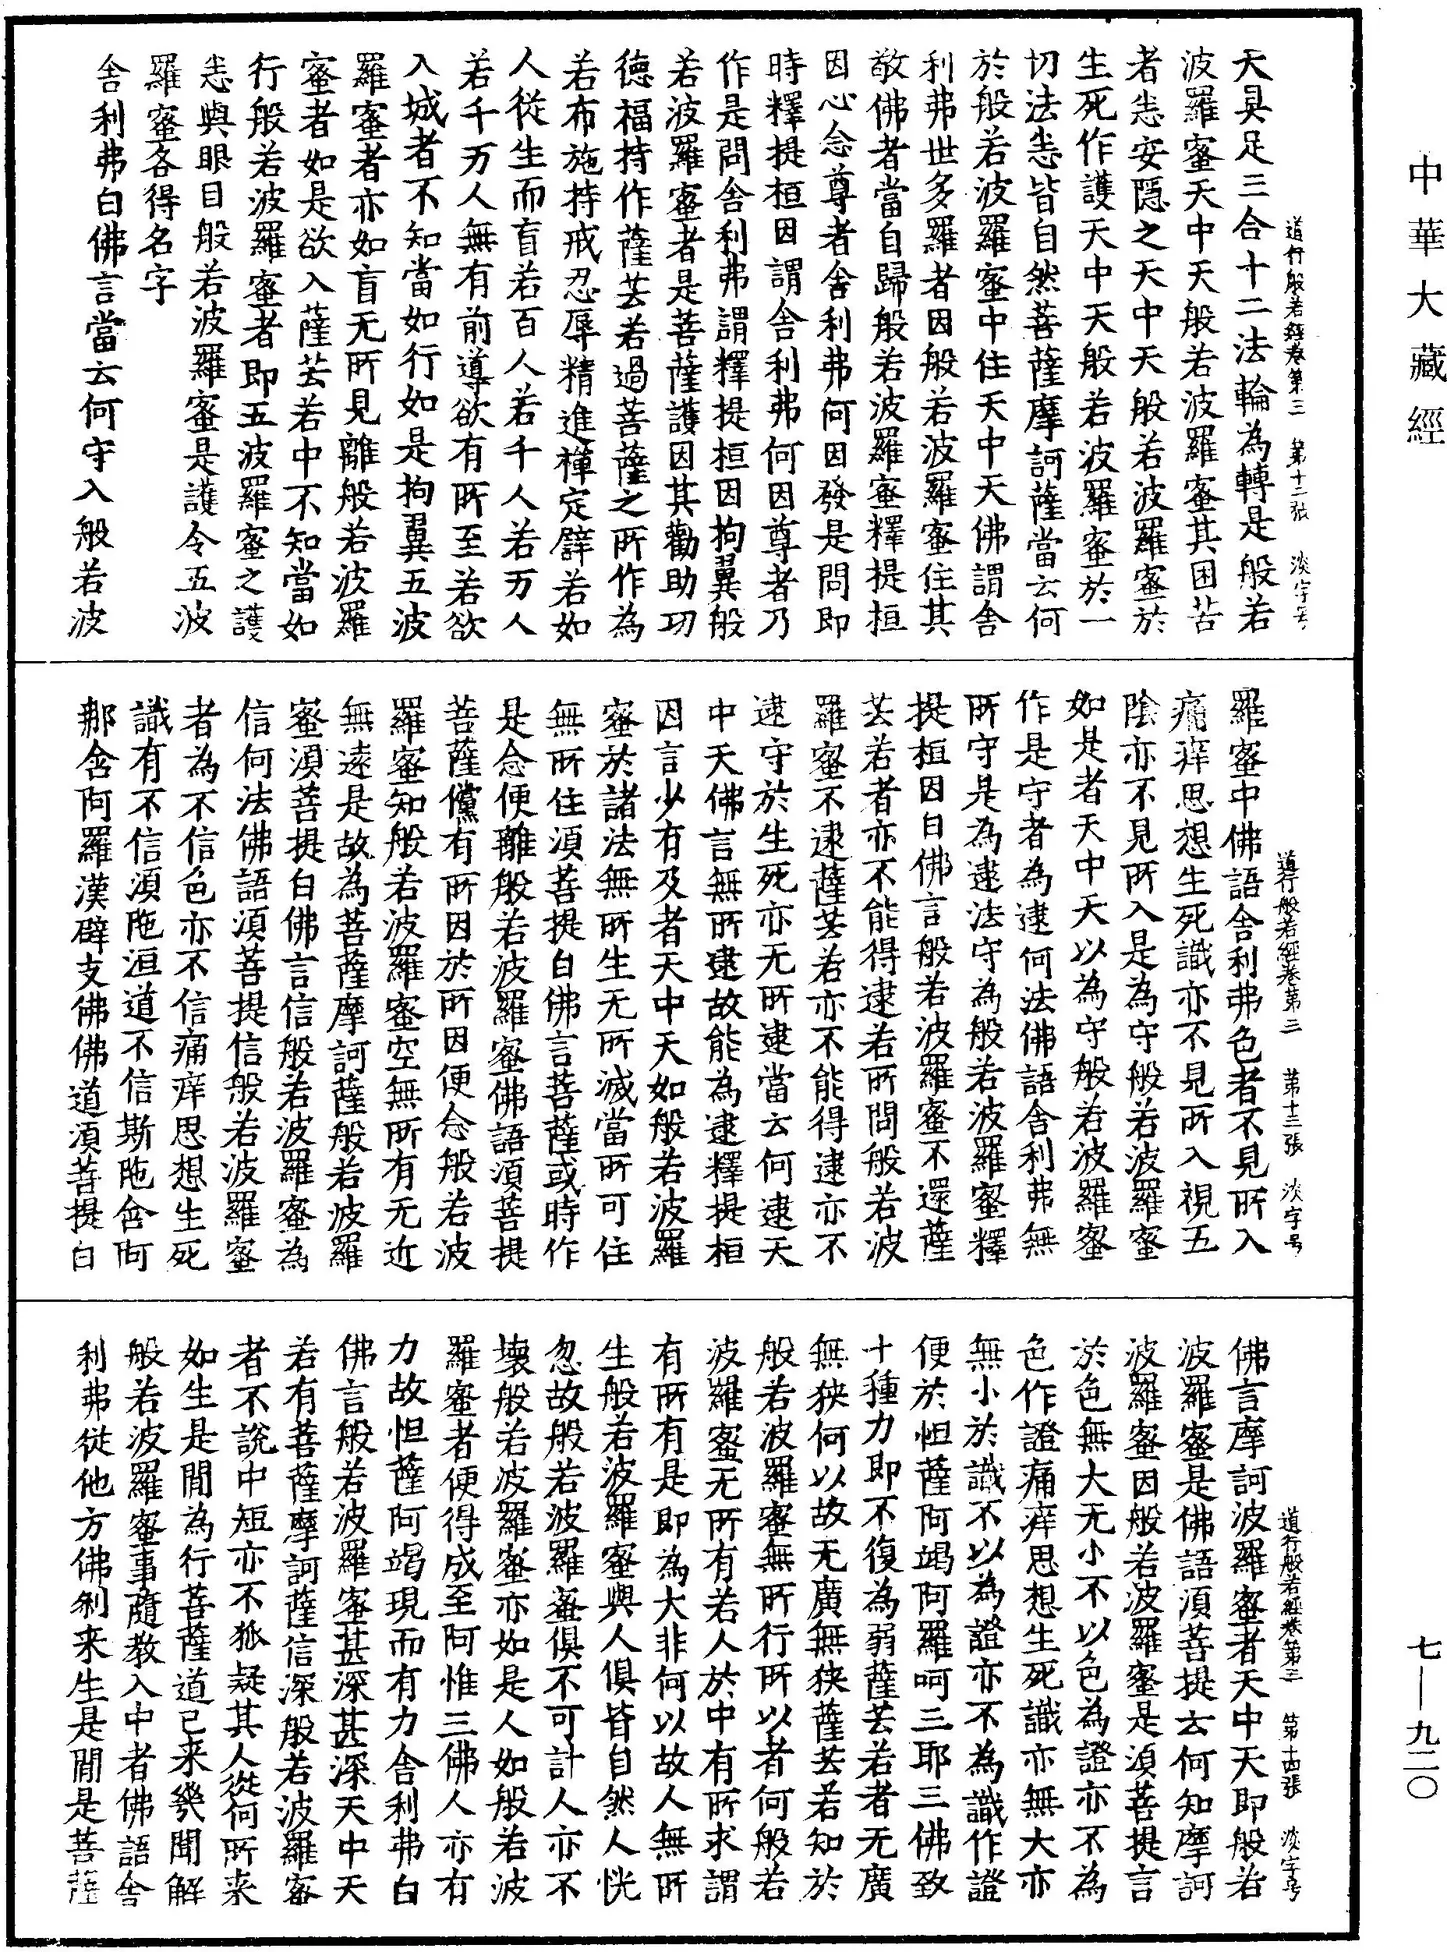 中華大藏經
七—九二〇
道行般若經卷第三　第十二張　淡字号
天具足三合十二法輪為轉是般若
波羅蜜天中天般若波羅蜜其困苦
者悉安隱之天中天般若波羅蜜於
生死作護天中天般若波羅蜜於一
切法悉皆自然菩薩摩訶薩當云何
於般若波羅蜜中住天中天佛謂舍
利弗世多羅者因般若波羅蜜住其
敬佛者當自歸般若波羅蜜釋提桓
因心念尊者舍利弗何因發是問即
時釋提桓因謂舍利弗何因尊者乃
作是問舍利弗謂釋提桓因拘翼般
若波羅蜜者是菩薩護因其勸助功
德福持作薩芸若過菩薩之所作為
若布施持戒忍辱精進禪定譬若如
人從生而盲若百人若千人若万人
若千万人無有前導欲有所至若欲
入城者不知當如行如是拘翼五波
羅蜜者亦如盲无所見離般若波羅
蜜者如是欲入薩芸若中不知當如
行般若波羅蜜者即五波羅蜜之護
悉與眼目般若波羅蜜是護令五波
羅蜜各得名字
舍利弗白佛言當云何守入般若波
道行般若經卷第三　第十三張　淡字号
羅蜜中佛語舍利弗色者不見所入
痛痒思想生死識亦不見所入視五
陰亦不見所入是為守般若波羅蜜
如是者天中天以為守般若波羅蜜
作是守者為逮何法佛語舍利弗無
所守是為逮法守為般若波羅蜜釋
提桓因白佛言般若波羅蜜不還薩
芸若者亦不能得逮若所問般若波
羅蜜不逮薩芸若亦不能得逮亦不
逮守於生死亦无所逮當云何逮天
中天佛言無所逮故能為逮釋提桓
因言少有及者天中天如般若波羅
蜜於諸法無所生无所滅當所可住
無所住須菩提白佛言菩薩或時作
是念便離般若波羅蜜佛語須菩提
菩薩儻有所因於所因便念般若波
羅蜜知般若波羅蜜空無所有无近
無遠是故為菩薩摩訶薩般若波羅
蜜須菩提白佛言信般若波羅蜜為
信何法佛語須菩提信般若波羅蜜
者為不信色亦不信痛痒思想生死
識有不信須陁洹道不信斯陁含阿
那含阿羅漢辟支佛佛道須菩提白
道行般若經卷第三　第十四張　淡字号
佛言摩訶波羅蜜者天中天即般若
波羅蜜是佛語須菩提云何知摩訶
波羅蜜因般若波羅蜜是須菩提言
於色無大无小不以色為證亦不為
色作證痛痒思想生死識亦無大亦
無小於識不以為證亦不為識作證
便於怛薩阿竭阿羅呵三耶三佛致
十種力即不復為弱薩芸若者无廣
無狹何以故无廣無狹薩芸若知於
般若波羅蜜無所行所以者何般若
波羅蜜无所有若人於中有所求謂
有所有是即為大非何以故人無所
生般若波羅蜜與人俱皆自然人恍
忽故般若波羅蜜俱不可計人亦不
壞般若波羅蜜亦如是人如般若波
羅蜜者便得成至阿惟三佛人亦有
力故怛薩阿竭現而有力舍利弗白
佛言般若波羅蜜甚深甚深天中天
若有菩薩摩訶薩信深般若波羅蜜
者不說中短亦不狐疑其人從何所来
如生是間為行菩薩道已来幾聞解
般若波羅蜜事隨教入中者佛語舍
利弗従他方佛剎来生是間是菩薩